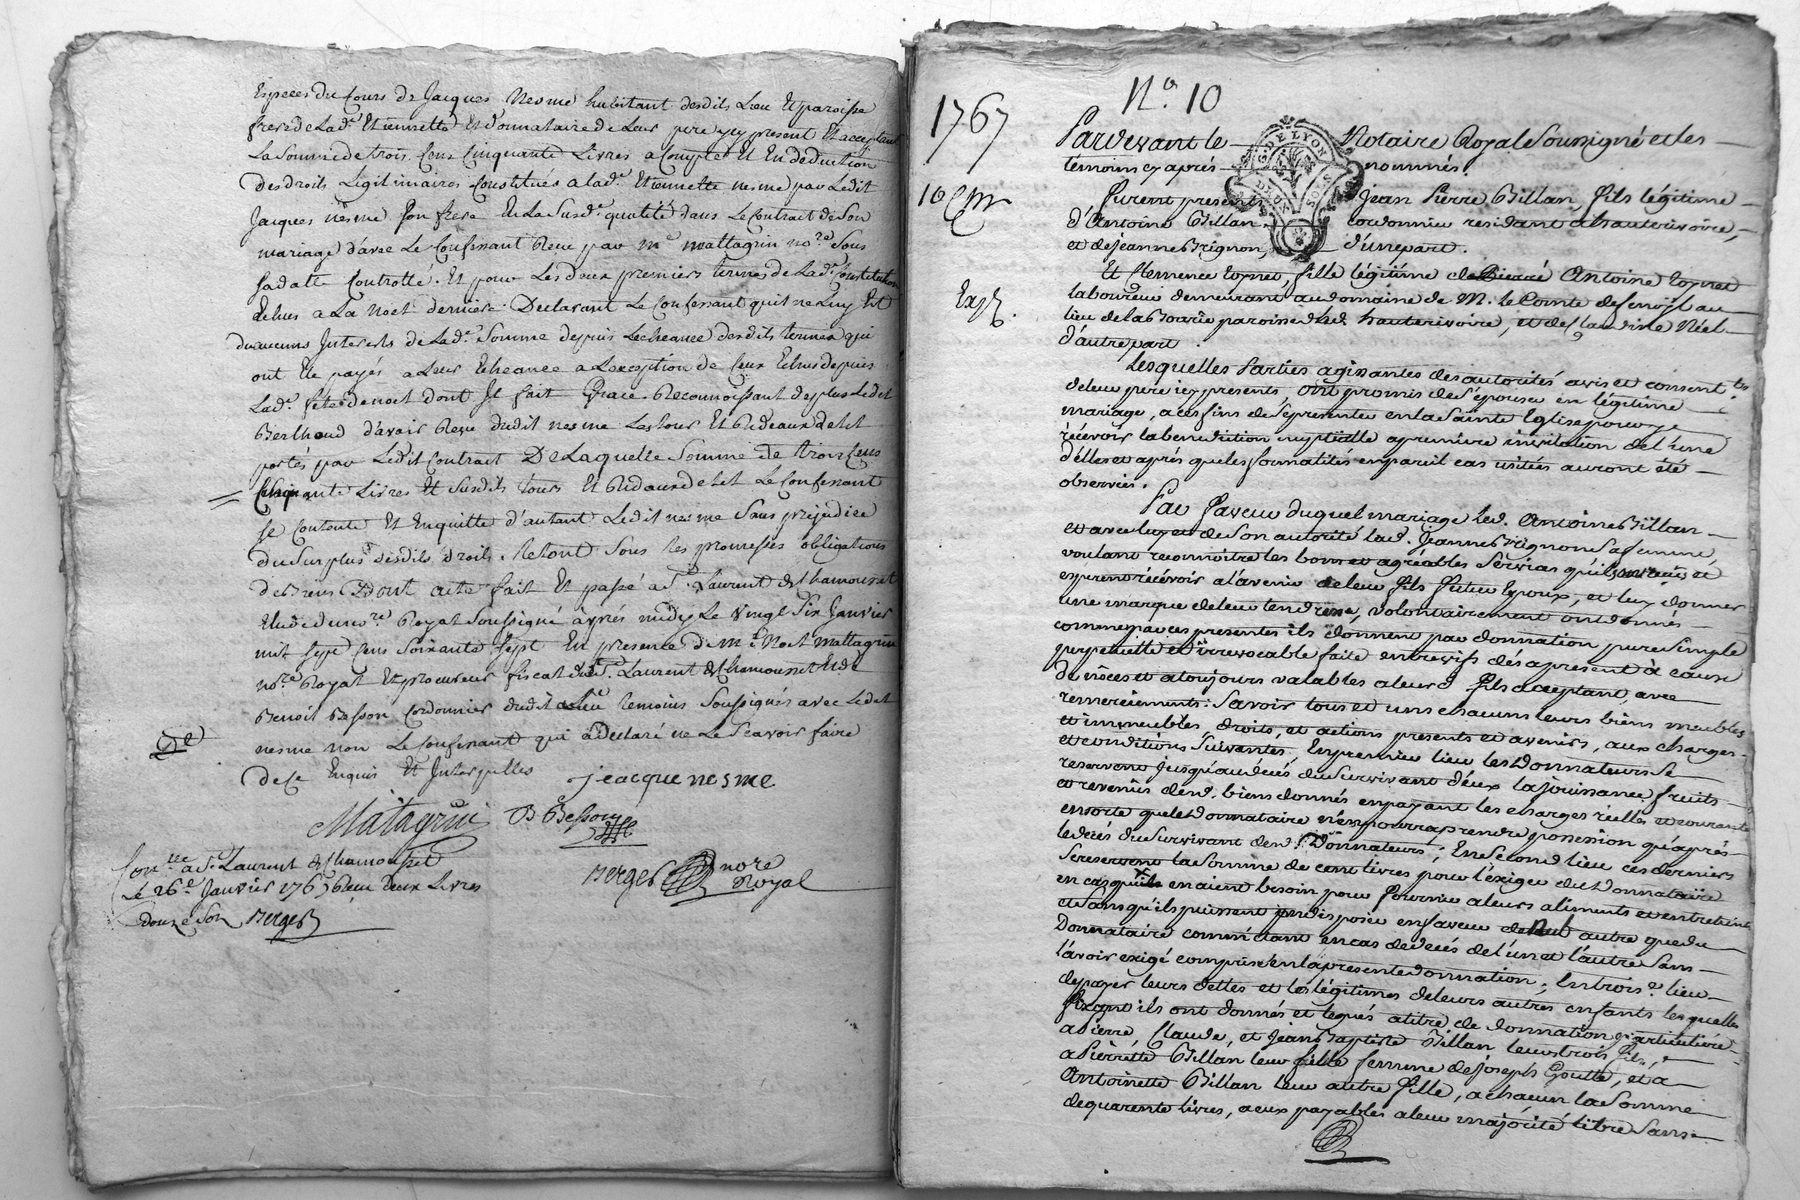 Especes du Cours de Jacques Nesme habitant desdits Lieu Et paroisse
frere de Lad.e Etiennette Et donnataire de Leur pere icy present Et acceptant
La Somme de trois Cens Cinquante Livres a Compte Et En deduction
Des droits Legitimaires Constitués a lad.e Etiennette nesme par Ledit
Jacques nesme Son frere En La Susd.e qualité dans Le Contract de Son
mariage d'avec Le Confessant Reçu par m.e mattagrin no.re Sous
Sa datte Controllé. Et pour Les deux premiers termes de Lad.e Constitution
Echus a La Noel derniere. Declarant Le Confessant qu'il ne Luy Est
Du aucuns Interests de Lad.e Somme depuis Lecheance desdits termes qui
ont Eté payés a Leur Echeance a Lexception de Ceux Echus depuis
Lad.e fete de noel dont Il fait Grace. Reconnoissant de plus Ledit
Berthoud d'avoir Reçu dudit nesme Les tour Et Rideaux de Lit
portés par Ledit Contract De Laquelle Somme de trois Cens
Cinquante Livres Et Susdits tours Et Rideaux de Lit Le Confessant
Se Contente Et En quitte d'autant Ledit nesme Sans prejudice
du Surplus desdits droits. Le tout Sous Les promesses obligations
de Biens Dont acte fait Et passé a S.t Laurent de Chamousset
Etude du no.re Royal Soussigné après midy Le Vingt Six Janvier
mil Sept Cens Soixante Sept En presence de M.e Noel Mattagrin
no.re Royal Et procureur fiscal dud.t S.t Laurent de Chamousset Et de
Benoit Besson Cordonnier dudit Lieu temoins Soussignés avec Ledit
nesme non Le Confessant qui a declaré ne Le Scavoir faire
De Ce Enquis Et Interpellés
jeacque nesme
Matagrin B Besson
Berger nore Royal
Con.lé a S.t Laurent de Chamousset
Le 26.e Janvier 1767 Reçu Deux Livres
Douze Sols Berger
N.o 10
1767
10 Janv
Exp.
G. DE LYON
DEUX SOLS
Pardevant le Notaire Royal Soussigné et les
témoins cy après nommés.
Furent presents Jean Pierre Billan, fils légitime
d'Antoine Billan, cordonnier residant a hauterivoire,
et de Jeanne Brignon, d'une part.
Et Clemence Eynet, fille légitime de Antoine Eynet
laboureur demeurant au domaine de M. le Comte de
lieu de la paroisse dud. hauterivoire, et de Claudine Néel
d'autre part.
Lesquelles Parties agissantes des autorités avis et consent.ts
de leur pere icy presents, ont promis de S'épouser en légitime
mariage, a ces fins de Se presenter en la Sainte Eglise pour y
recevoir la benediction nuptialle a premiere invitation de l'une
d'elles et après que les formalités en pareil cas usitées auront été
observées.
En faveur duquel mariage led. Antoine Billan
et avec luy et de Son autorité lad. Jeanne Brignon Sa femme
voulant reconnoitre les bons et agréables Services qu'ils ont reçu et
esperent récévoir a l'avenir de leur fils futur Epoux, et luy donner
une marque de leur tendresse, volontairement ont donnés
comme par ces presentes ils donnent par donnation pure Simple
perpetuelle et irrevocable faite entre vifs dès a present à cause
De nôces et a toujours valables a leurd fils acceptant, avec
remerciements: Savoir tous et uns chacuns leurs biens meubles
et immeubles, droits, et actions presents et avenirs, aux charges
et conditions Suivantes. En premier lieu les Donnateurs Se
reservent jusqu'au decés du Survivant d'eux la jouissance fruits
et revenus desd. biens donnés en payant les charges réelles et courantes
en sorte que le Donnataire n'en pourra prendre possession qu'après
le decés du Survivant desd.ts Donnateurs; En Second lieu ces derniers
Se reservent la Somme de cent livres pour l'exiger du Donnataire
en cas qu'ils en aient besoin pour fournir a leurs aliments et entretiens
et Sans qu'ils puissent en disposer en faveur de Nul autre que du
Donnataire comm'étant en cas de decés de l'un et l'autre Sans
l'avoir exigé comprise en la presente donnation; En trois.e lieu
de payer leurs dettes et les légitimes de leurs autres enfants lesquelles
fixant ils ont donnés et legués a titre de donnation particulière
a Pierre, Claude, et Jean Baptiste Billan leurs trois fils,
a Pierrette Billan leur fille femme de Joseph Goutte, et a
Antoinette Billan leur autre fille, a chacun la Somme
de quarente livres, a eux payables a leur majorité libre Sans